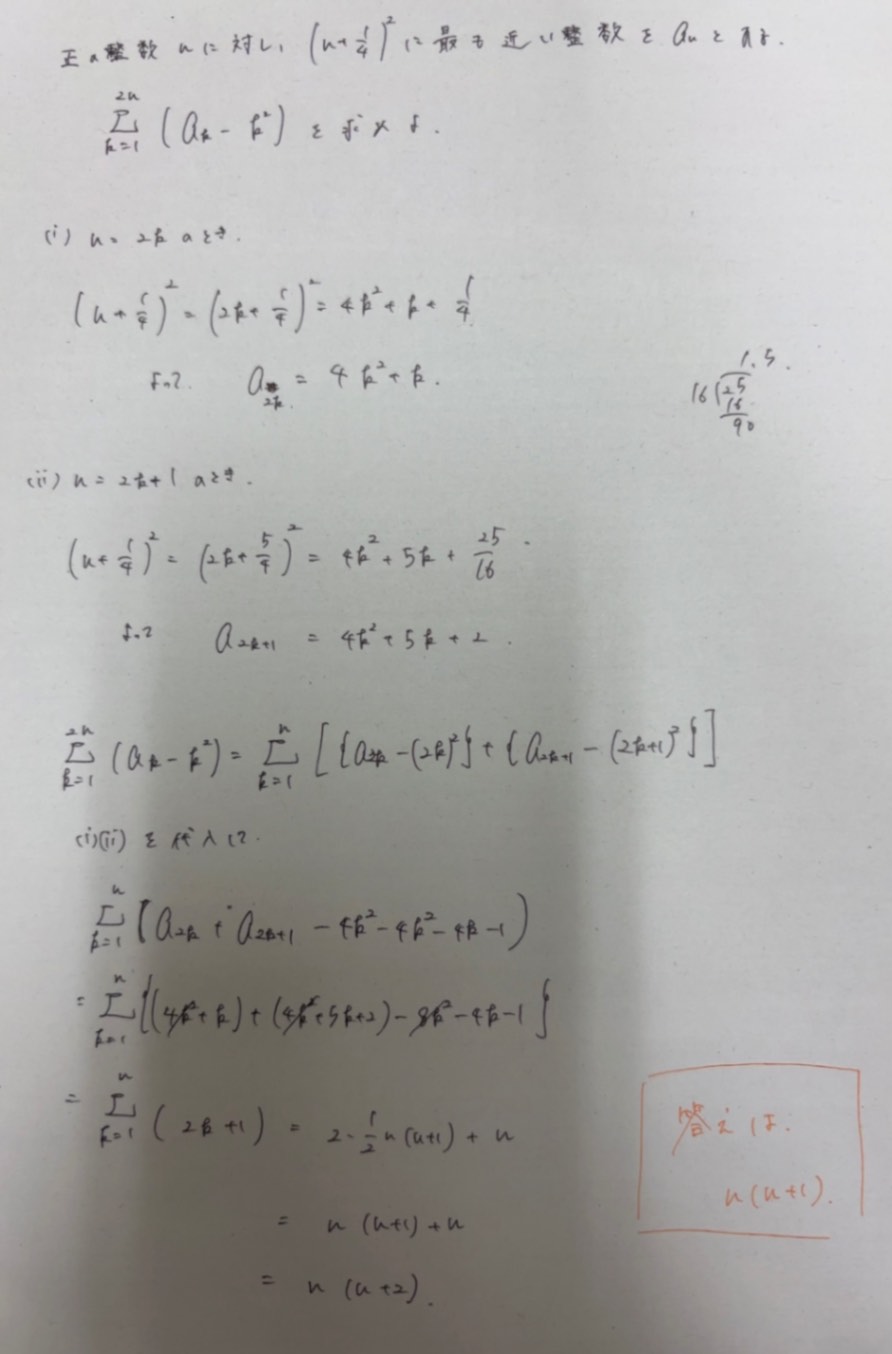 正の整数 n に対し、(n+1/4)² に最も近い整数を aₙ とする.
Σ_{k=1}^{2n} (a_k - k²) を求めよ.
(i) n = 2k のとき.
(n+1/4)² = (2k+1/4)² = 4k²+k+1/4
よって. a_{2k} = 4k²+k.
1.5.
16)25
16
90
(ii) n = 2k+1 のとき.
(n+1/4)² = (2k+5/4)² = 4k²+5k+25/16.
よって a_{2k+1} = 4k²+5k+2.
Σ_{k=1}^{2n} (a_k - k²) = Σ_{k=1}^{n} [{a_{2k} - (2k)²} + {a_{2k+1} - (2k+1)²}]
(i)(ii) を代入して.
Σ_{k=1}^{n} (a_{2k} + a_{2k+1} - 4k² - 4k² - 4k - 1)
= Σ_{k=1}^{n} {(4k²+k) + (4k²+5k+2) - 8k² - 4k - 1}
= Σ_{k=1}^{n} (2k+1) = 2·1/2 n(n+1) + n
= n(n+1)+n
= n(n+2).
答えは.
n(n+1).